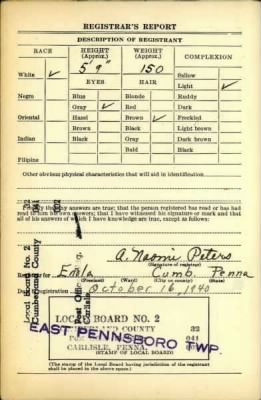 REGISTRAR'S REPORT
DESCRIPTION OF REGISTRANT
RACE HEIGHT (Approx.) WEIGHT (Approx.) COMPLEXION
5' 9" 150
White ✓ EYES HAIR Sallow
Light ✓
Negro Blue Blonde Ruddy
Gray ✓ Red Dark
Oriental Hazel Brown ✓ Freckled
Brown Black Light brown
Indian Black Gray Dark brown
Bald Black
Filipino
Other obvious physical characteristics that will aid in identification
that my answers are true; that the person registered has read or has had
read to him his own answers; that I have witnessed his signature or mark and that
all of his answers of which I have knowledge are true, except as follows:
Local Board No. 2
Cumberland County
A. Naomi Peters
(Signature of registrar)
for Enola Cumb. Penna
(Precinct) (Ward) (City or county) (State)
registration October 16, 1940
LOCAL BOARD NO. 2
COUNTY 32
041
CARLISLE, PENNA.
(STAMP OF LOCAL BOARD)
EAST PENNSBORO TWP.
(The stamp of the Local Board having jurisdiction of the registrant
shall be placed in the above space.)